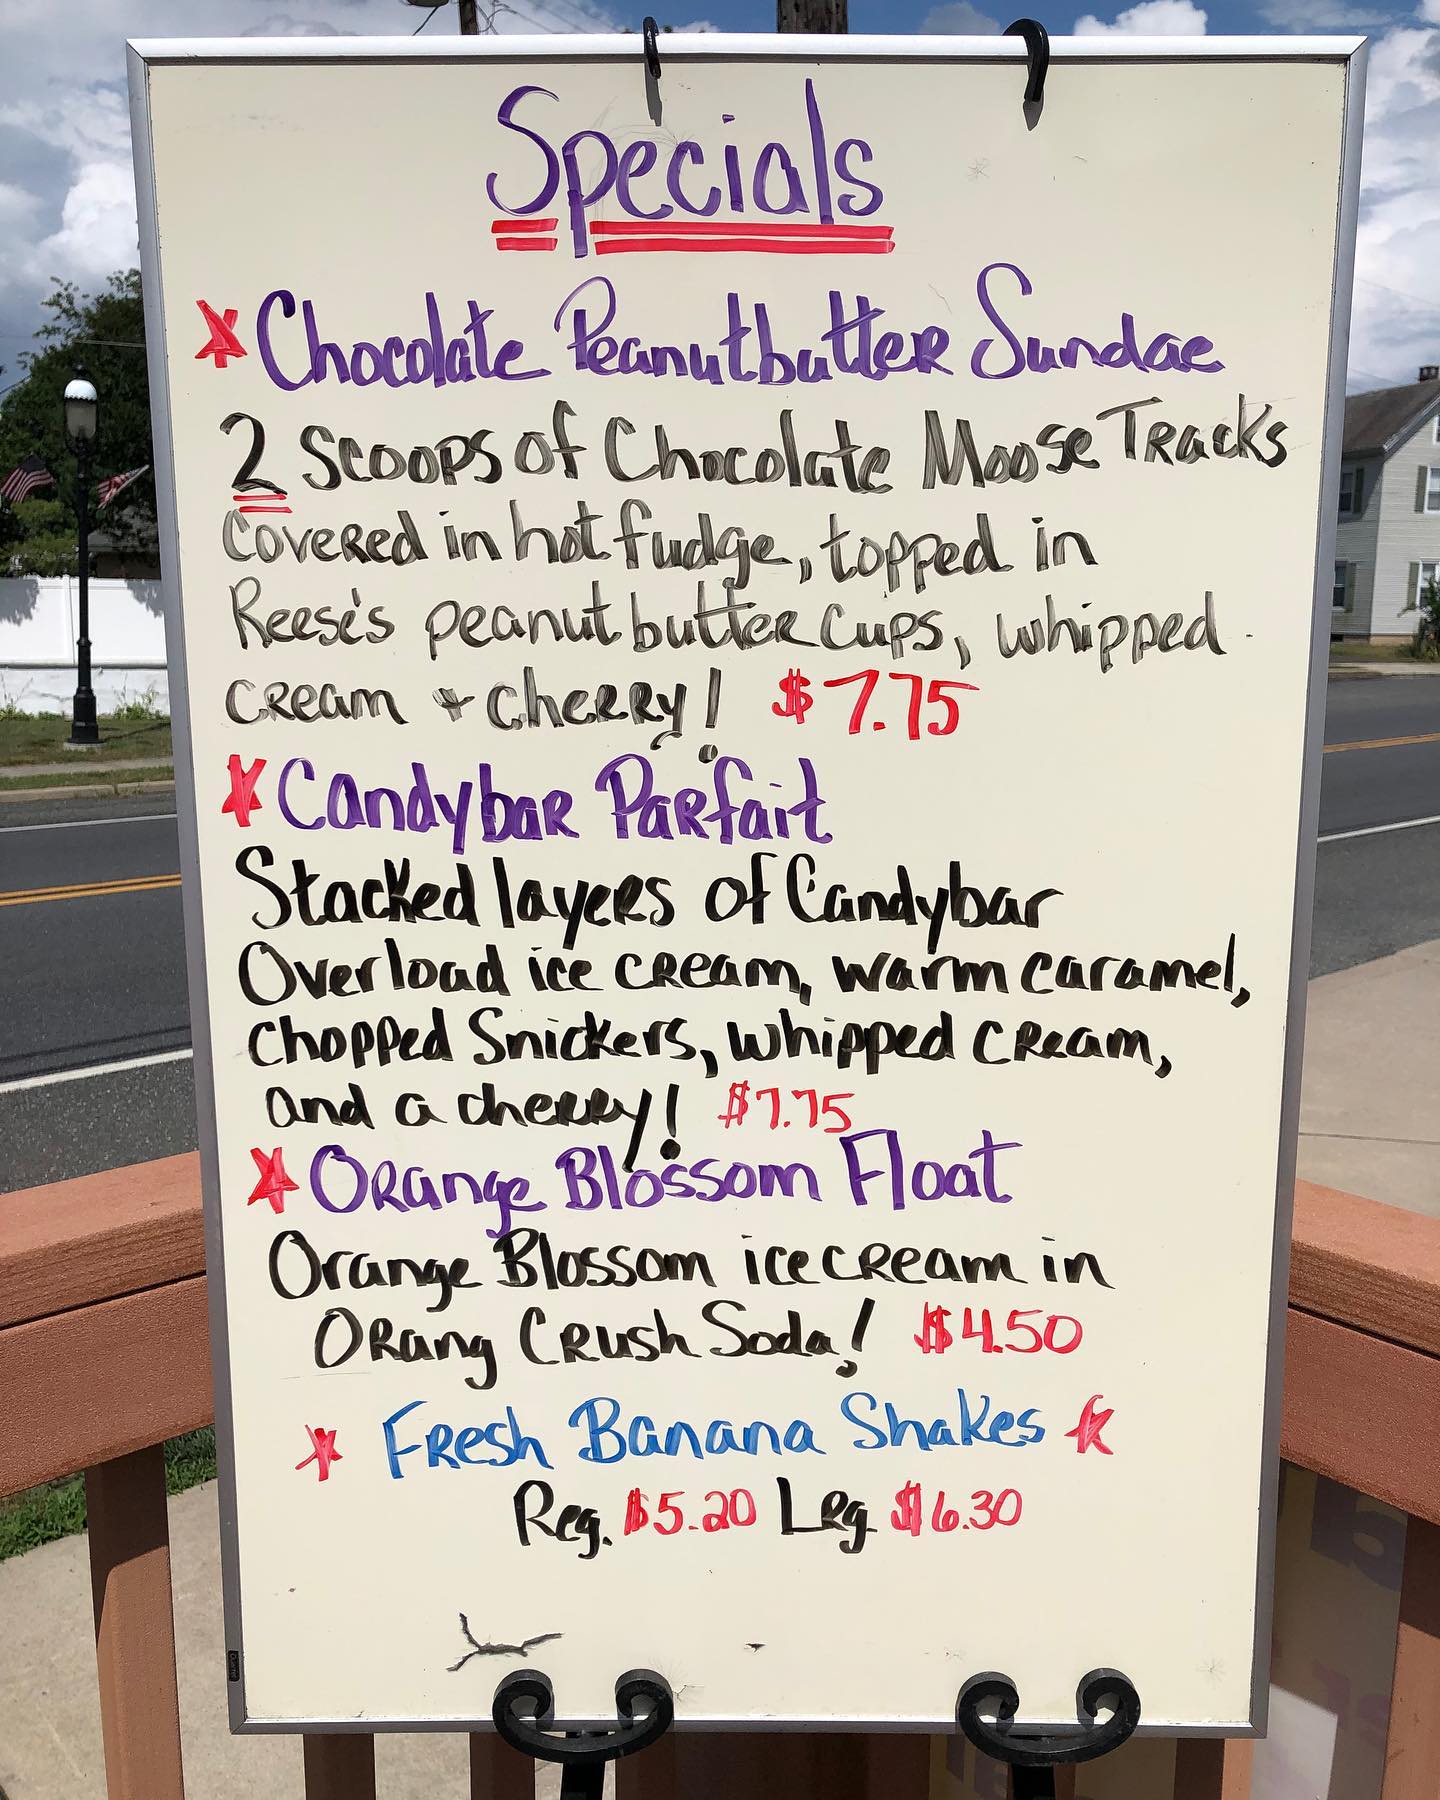 Specials
Chocolate Peanutbutter Sundae
2 Scoops of Chocolate Moose Tracks
Covered in hot fudge, topped in
Reese's peanut butter Cups, whipped
cream + cherry! $7.75
Candybar Parfait
Stacked layers of Candybar
Overload ice cream, warm caramel,
chopped Snickers, whipped cream,
and a cherry! $7.75
Orange Blossom Float
Orange Blossom ice cream in
Orang Crush Soda! $4.50
Fresh Banana Shakes
Reg. $5.20 Leg $6.30